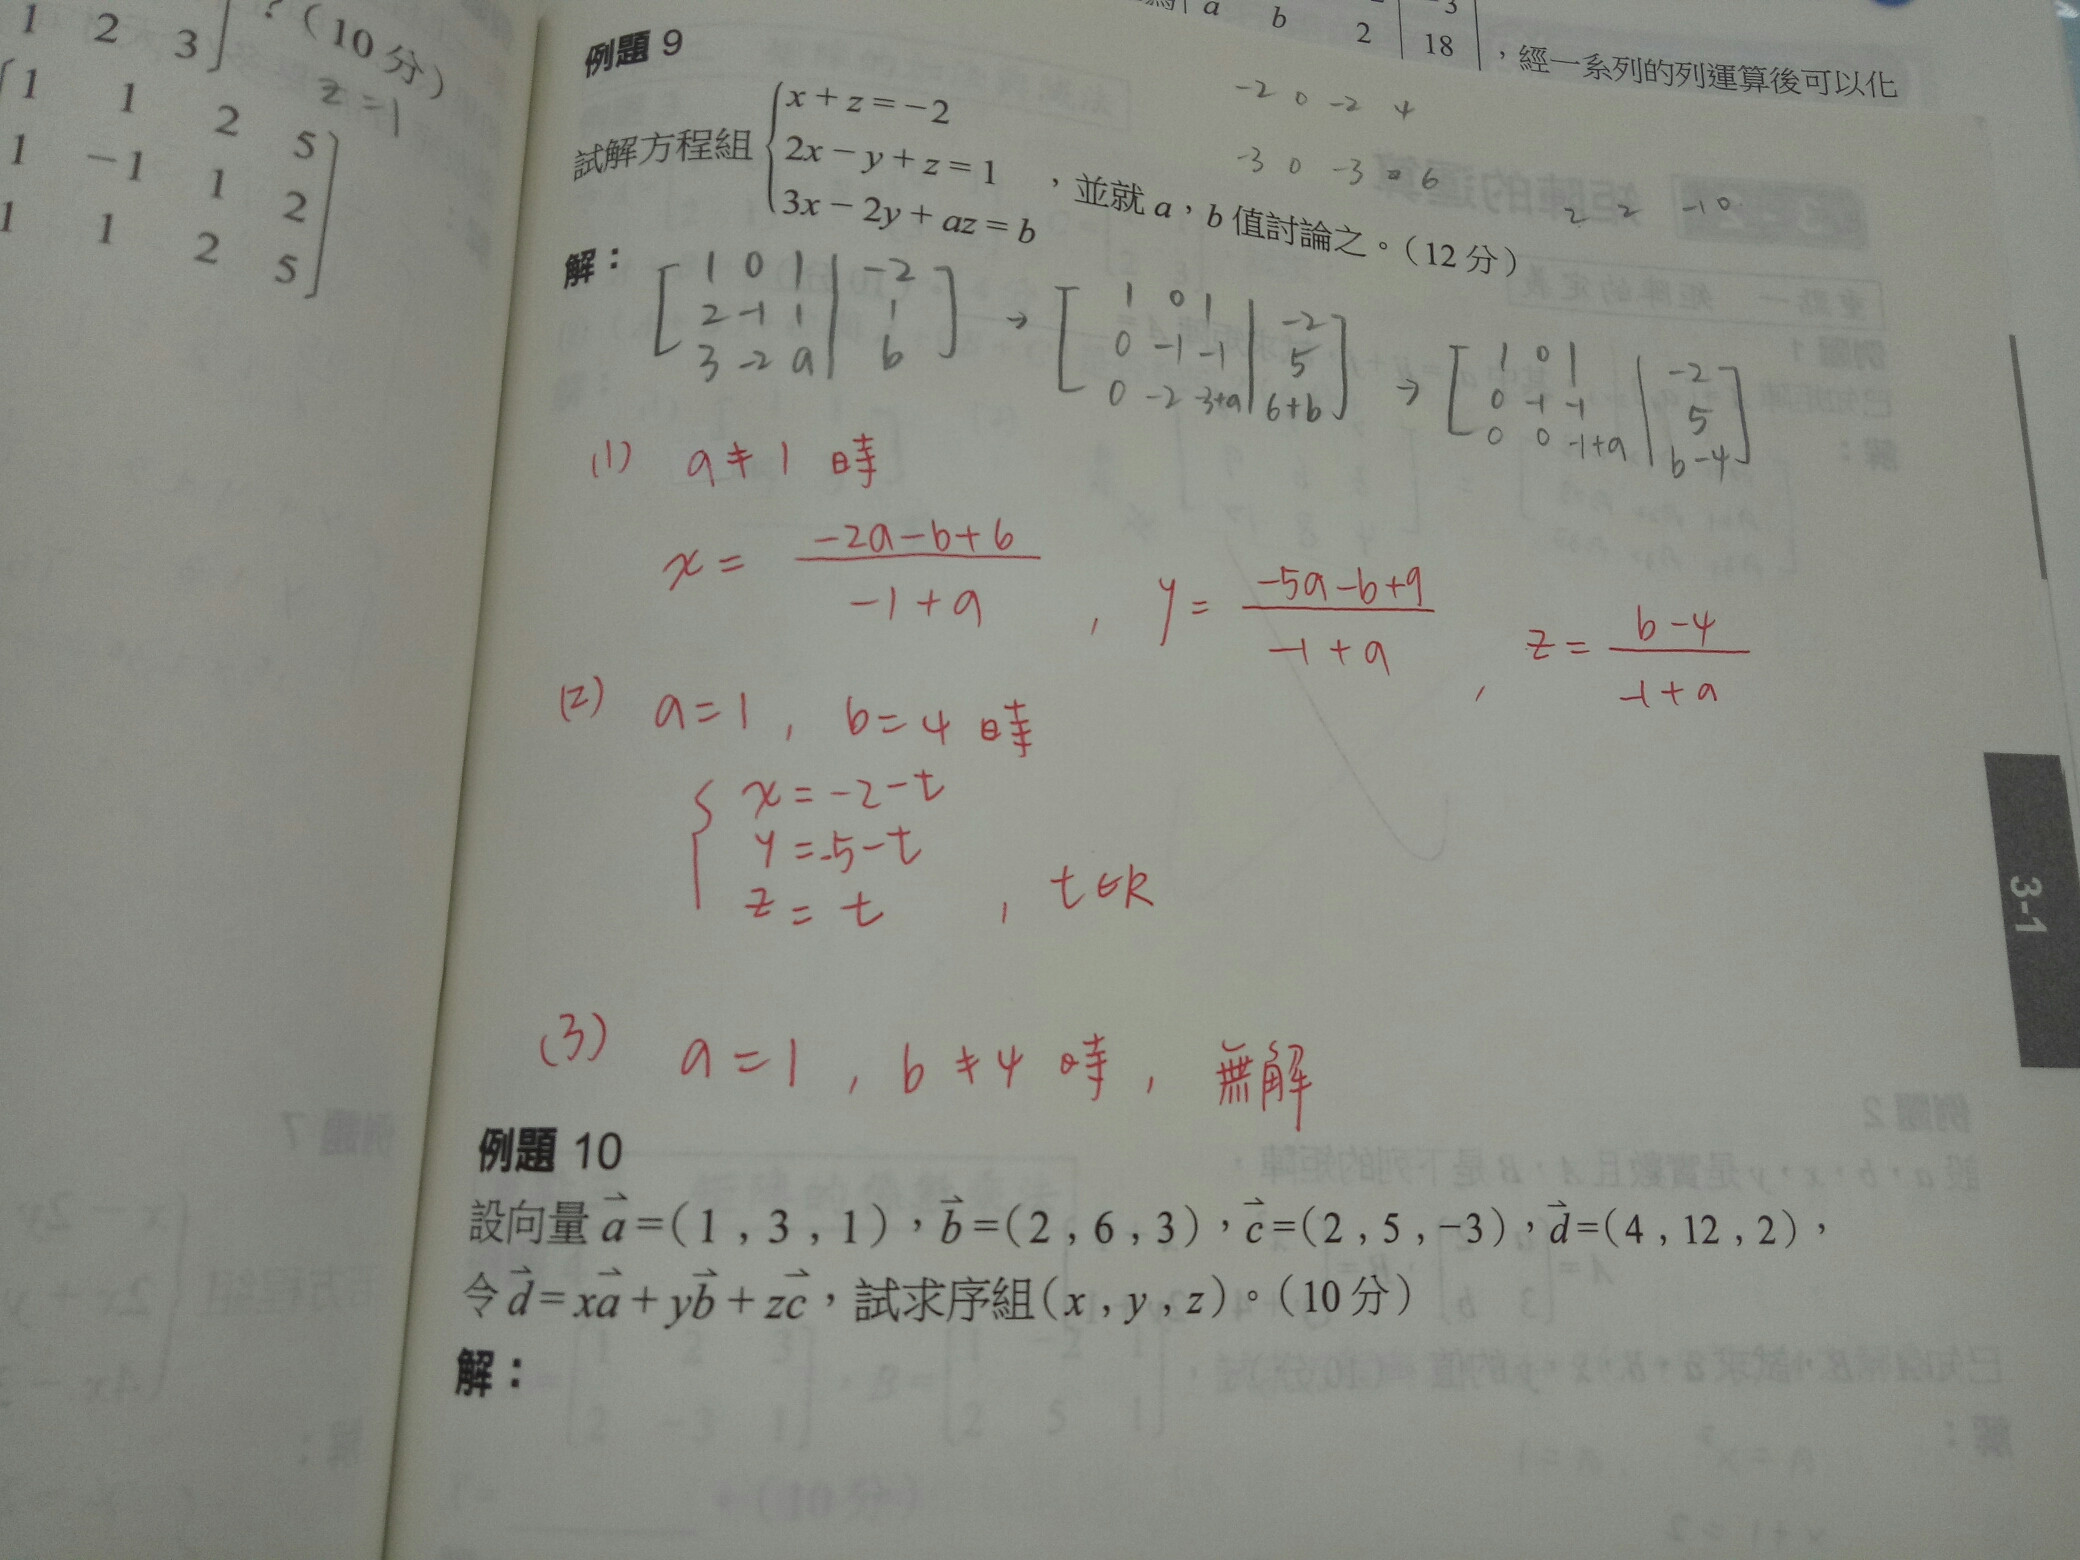 1 2 3] ?(10分)
z=1
1 1 2 5
1 -1 1 2
1 1 2 5
a b 2 | 18 |,經一系列的列運算後可以化
例題 9
試解方程組 { x+z=-2
2x-y+z=1
3x-2y+az=b ,並就 a,b 值討論之。(12分)
-2 0 -2 4
-3 0 -3 6
2 2 -10
解:
[1 0 1 | -2
2 -1 1 | 1
3 -2 a | b]
→ [1 0 1 | -2
0 -1 -1 | 5
0 -2 -3+a | 6+b]
→ [1 0 1 | -2
0 -1 -1 | 5
0 0 -1+a | b-4]
(1) a≠1 時
x = (-2a-b+6)/(-1+a) , y = (-5a-b+9)/(-1+a) , z = (b-4)/(-1+a)
(2) a=1 , b=4 時
{ x=-2-t
y=-5-t
z=t , t∈R
(3) a=1 , b≠4 時 , 無解
3-1
例題 10
設向量 a⃗=(1,3,1),b⃗=(2,6,3),c⃗=(2,5,-3),d⃗=(4,12,2),
令 d⃗=xa⃗+yb⃗+zc⃗,試求序組(x,y,z)。(10分)
解: